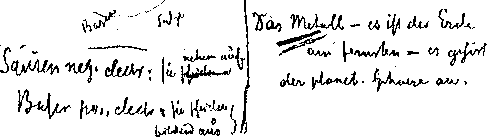 Basen Salz
Säuren neg. electr: sie nehmen auf
Basen pos. electr: sie scheiden
bildend aus
Das Metall – es ist der Erde
am fernsten – es gehört
der planet. Sphäre an.